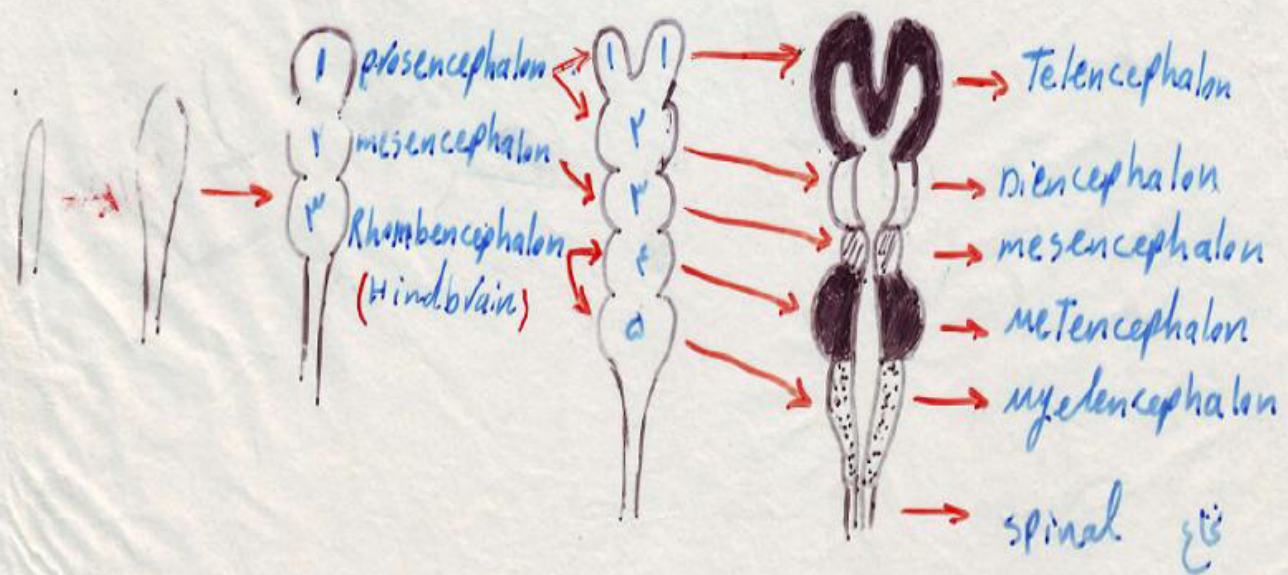 ۱
prosencephalon
۲
mesencephalon
۳
Rhombencephalon
(Hindbrain)
۱ ۱
۲
۳
۴
۵
Telencephalon
Diencephalon
mesencephalon
meTencephalon
myelencephalon
spinal نخاع